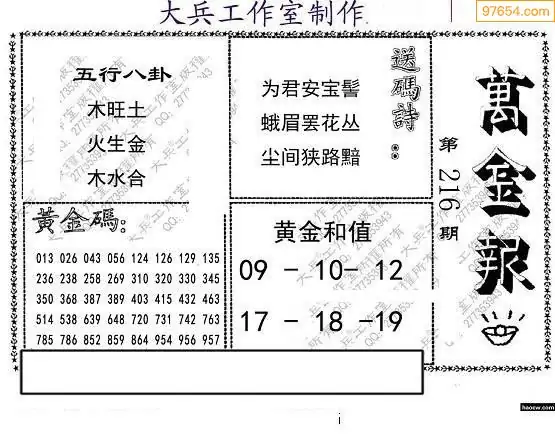 大兵工作室制作
97654.com
五行八卦
木旺土
火生金
木水合
送碼詩:
为君安宝髻
蛾眉罢花丛
尘间狭路黯
萬金報
第216期
黃金碼:
013 026 043 056 124 126 129 135
236 238 258 269 310 320 330 345
350 368 387 389 403 415 432 463
514 538 639 648 720 731 742 763
785 786 852 859 864 954 956 957
黄金和值
09 - 10- 12
17 - 18 -19
i
haocw.com